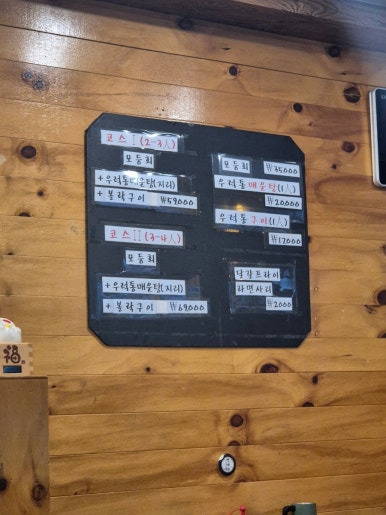 코스 I (2-3人)
모둠회
+우럭통매운탕(지리)
+볼락구이 ₩59,000
코스 II (3-4人)
모둠회
+우럭통매운탕(지리)
+볼락구이 ₩69,000
모둠회
₩35000
우럭통매운탕(1人)
₩20,000
우럭통구이(1人)
₩17,000
달걀프라이
라면사리
₩2000
福